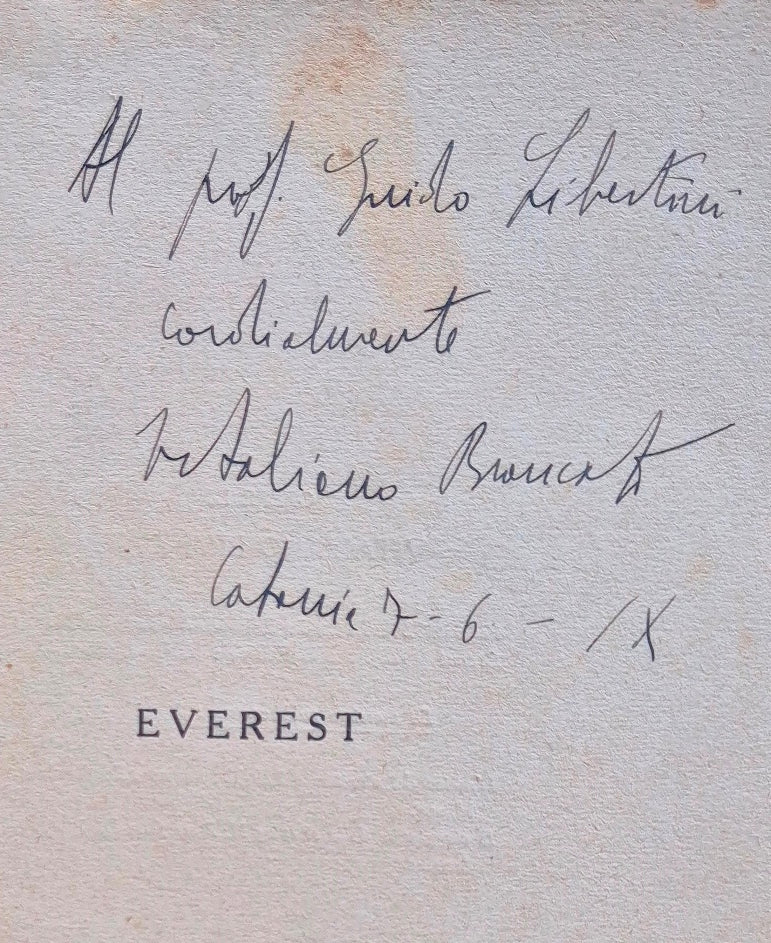 Al prof. Guido Libertini
cordialmente
Vitaliano Brancati
Catania 7-6-IX
EVEREST